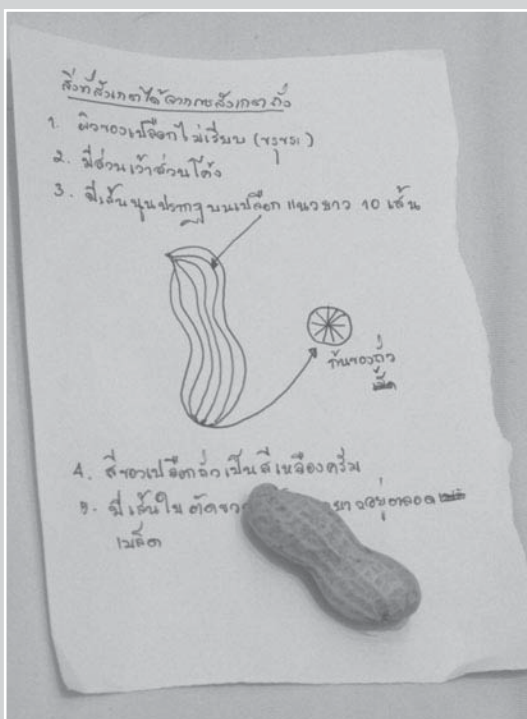 สิ่งที่สังเกตได้จากการสังเกตถั่ว
1. ผิวของเปลือกไม่เรียบ (ขรุขระ)
2. มีส่วนเว้าส่วนโค้ง
3. มีเส้นนูนปรากฏบนเปลือกแนวยาว 10 เส้น
ก้นของถั่ว
4. สีของเปลือกถั่วเป็นสีเหลืองครีม
5. มีเส้นใย ตัดขวาง ยาวอยู่ตลอด
เมล็ด